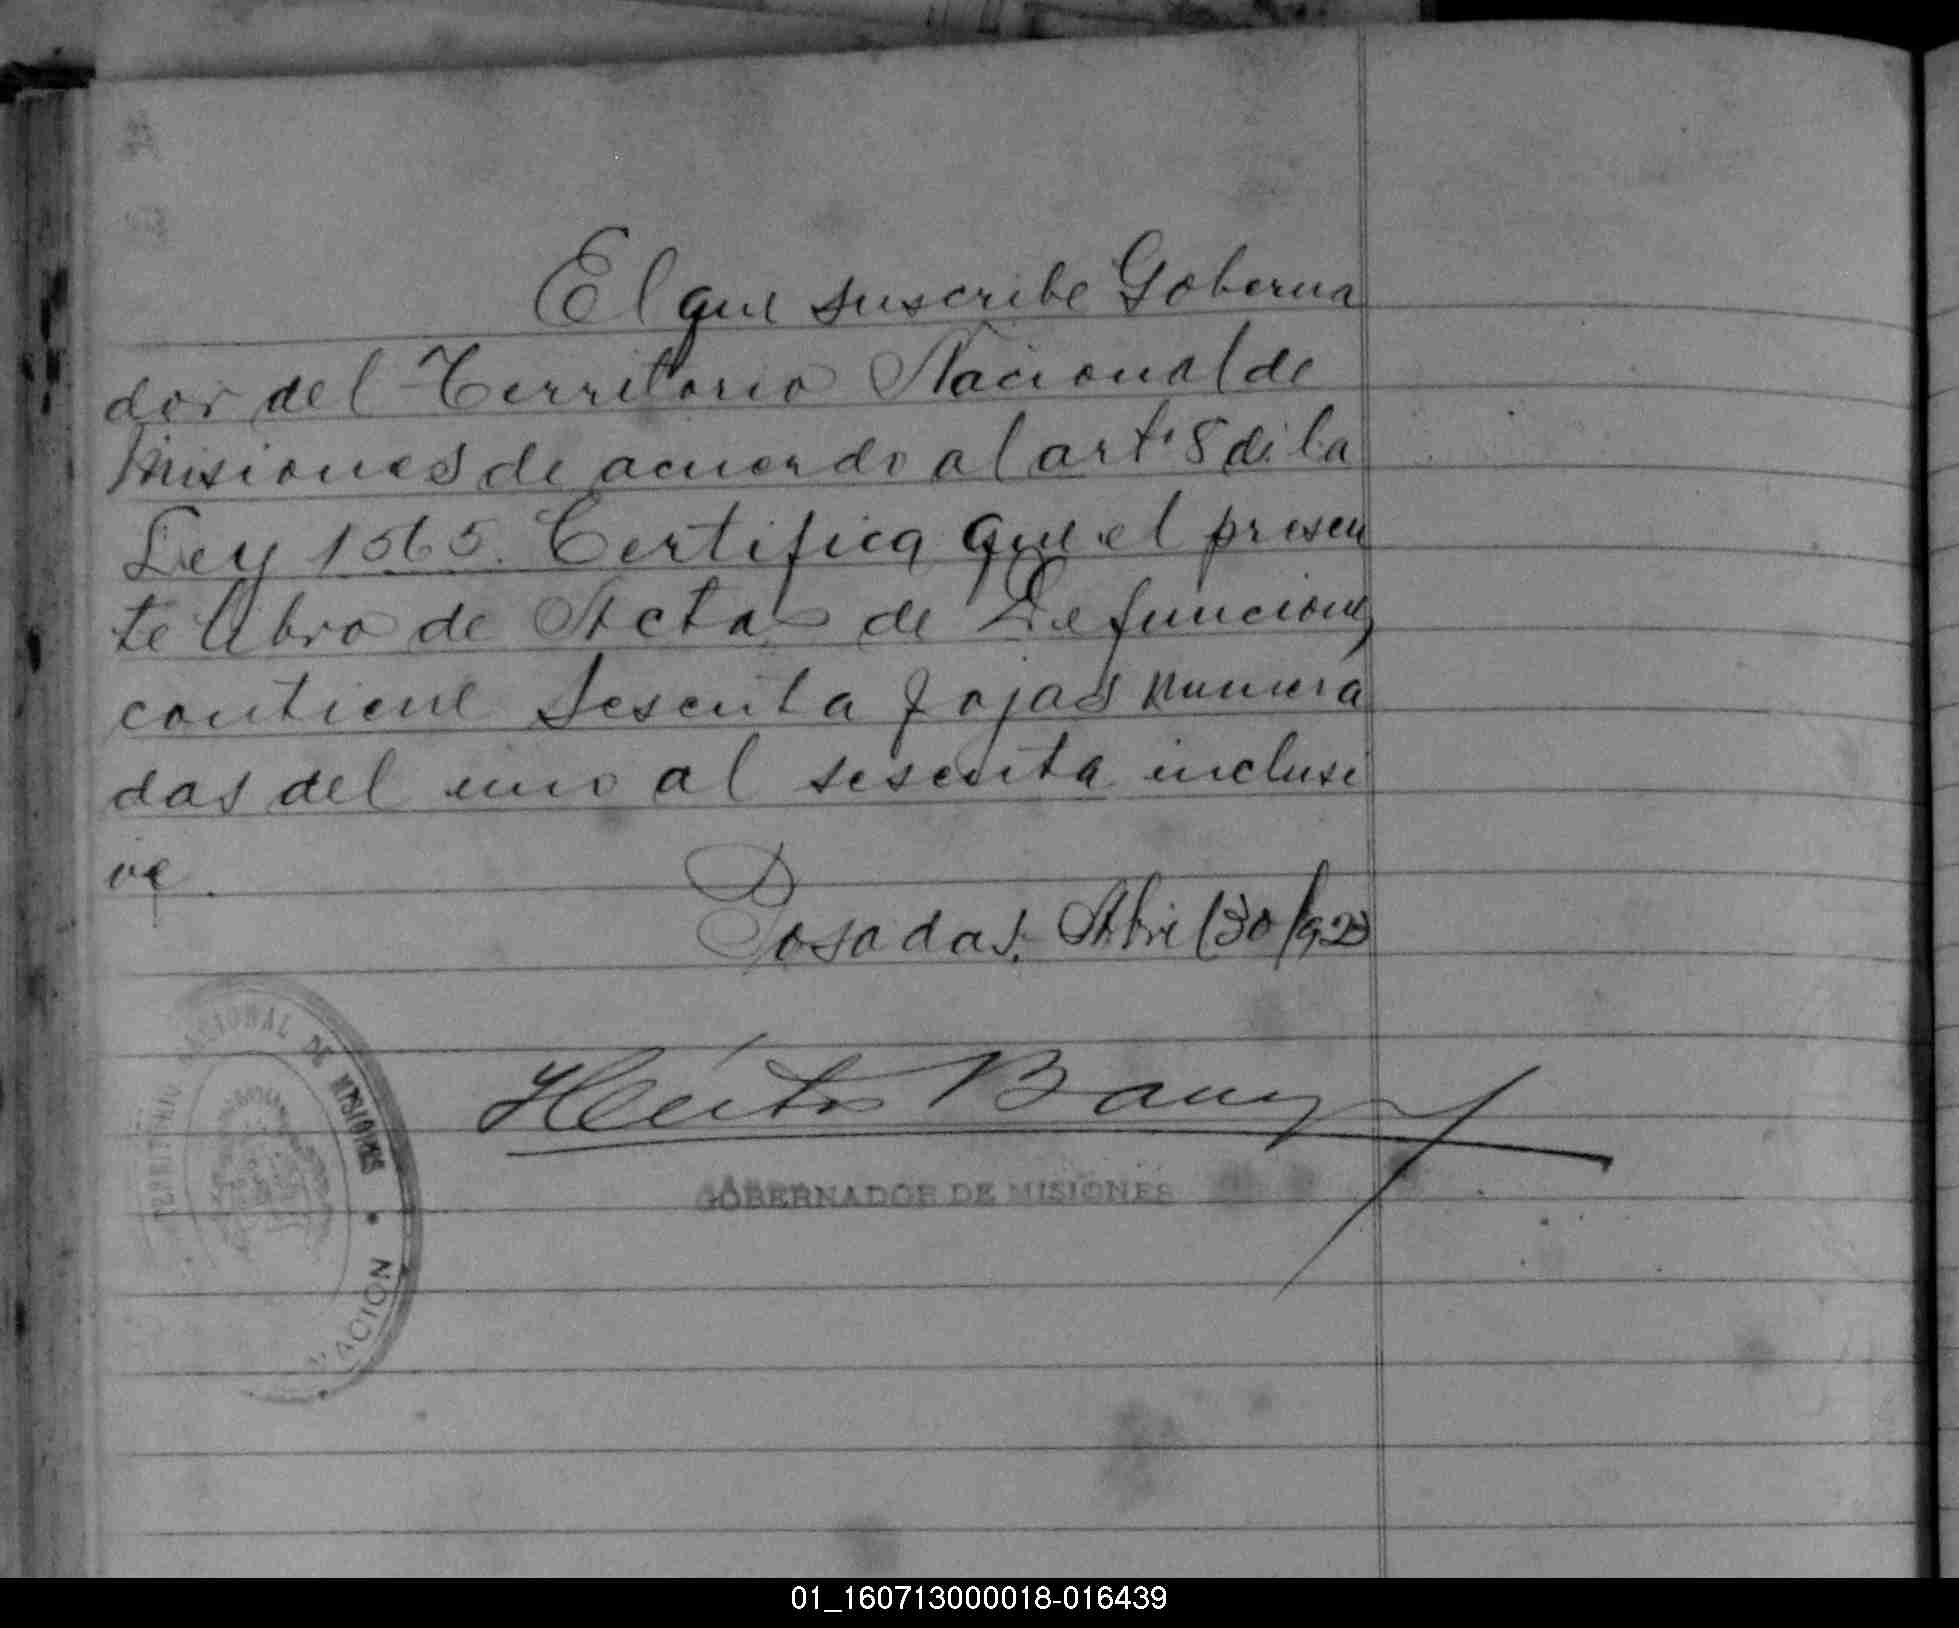 El que suscribe Goberna
dor del Territorio Nacional de
Misiones de acuerdo al art. 8 de la
Ley 1565. Certifica que el presen
te libro de Actas de Defunciones
contiene Sesenta fojas numera
das del uno al sesenta inclusi
ve.
Posadas, Abril 30/923
Héctor Barreyro
GOBERNADOR DE MISIONES
TERRITORIO NACIONAL DE MISIONES
01_160713000018-016439